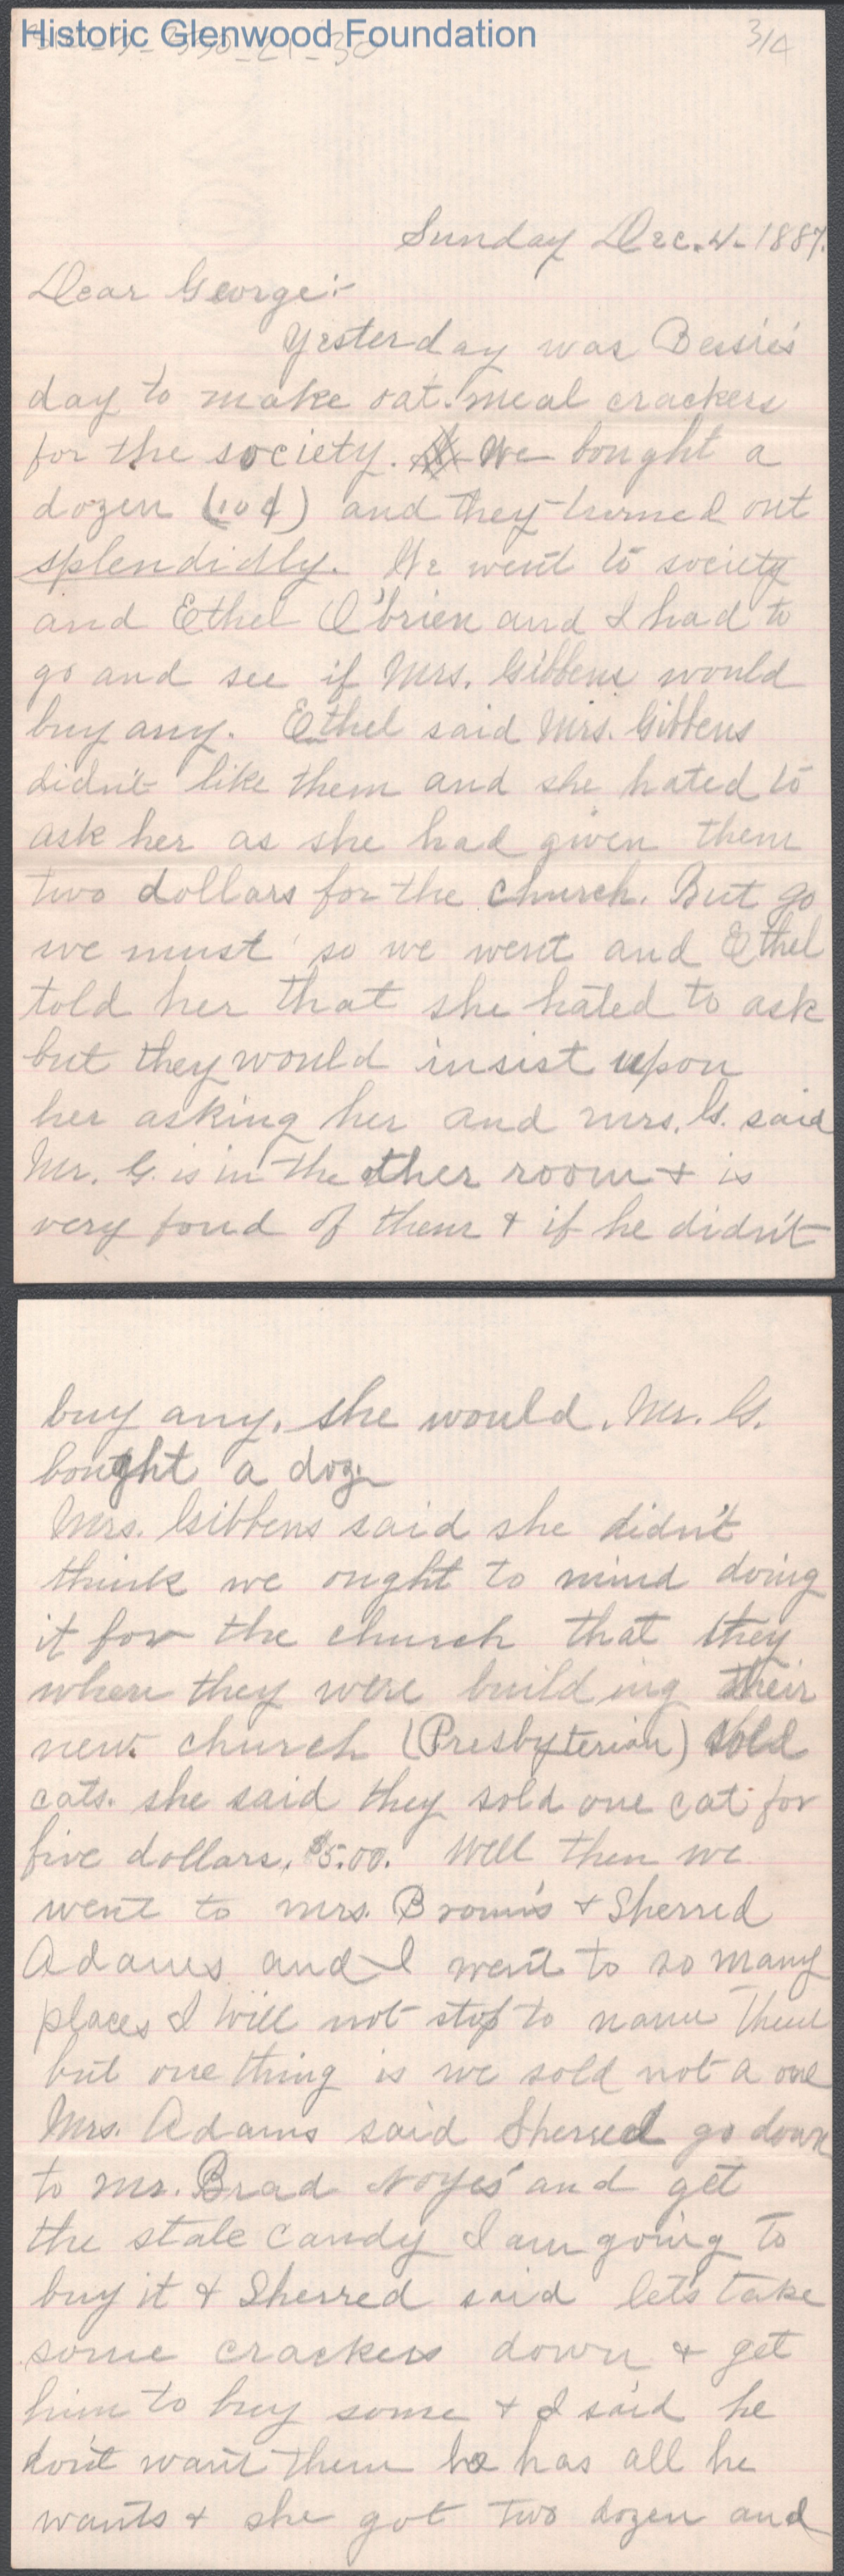 Historic Glenwood Foundation
3/4
Sunday Dec. 4. 1887.
Dear George:-
Yesterday was Bessie's
day to make oat-meal crackers
for the society. We bought a
dozen (10¢) and they turned out
splendidly. We went to society
and Ethel O'brien and I had to
go and see if Mrs. Gibbens would
buy any. Ethel said Mrs. Gibbens
didn't like them and she hated to
ask her as she had given them
two dollars for the church. But go
we must so we went and Ethel
told her that she hated to ask
but they would insist upon
her asking her and Mrs. G. said
Mr. G. is in the other room & is
very fond of them & if he didn't
buy any, she would. Mr. G.
bought a doz.
Mrs. Gibbens said she didn't
think we ought to mind doing
it for the church that they
when they were building their
new church (Presbyterian) sold
cats. she said they sold one cat for
five dollars, $5.00. Well then we
went to Mrs. Brown's & Sherred
Adams and I went to so many
places I will not stop to name them
but one thing is we sold not a one
Mrs. Adams said Sherred go down
to Mr. Brad Noyes' and get
the stale candy I am going to
buy it & Sherred said let's take
some crackers down & get
him to buy some & I said he
don't want them he has all he
wants & she got two dozen and